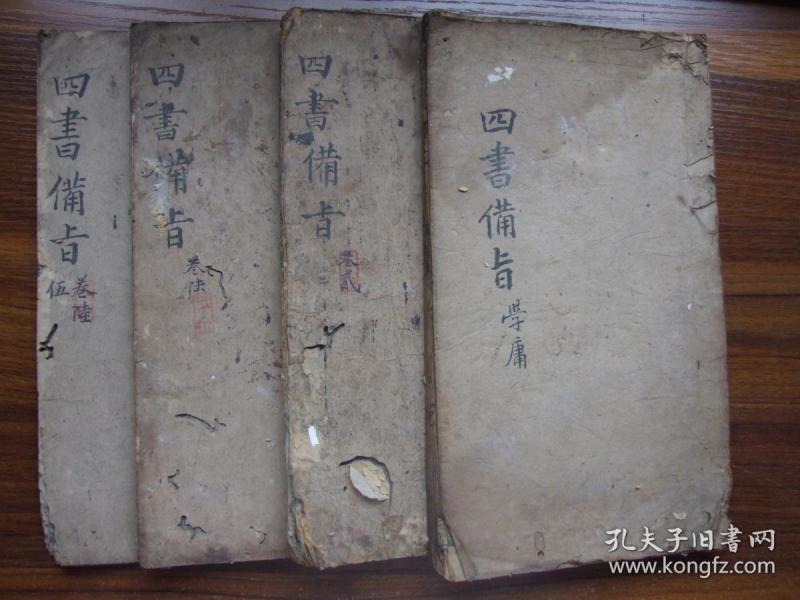 四書備旨
學庸
四書備旨
卷貳
四書備旨
四書備旨
卷陸
伍
孔夫子旧書网
www.kongfz.com